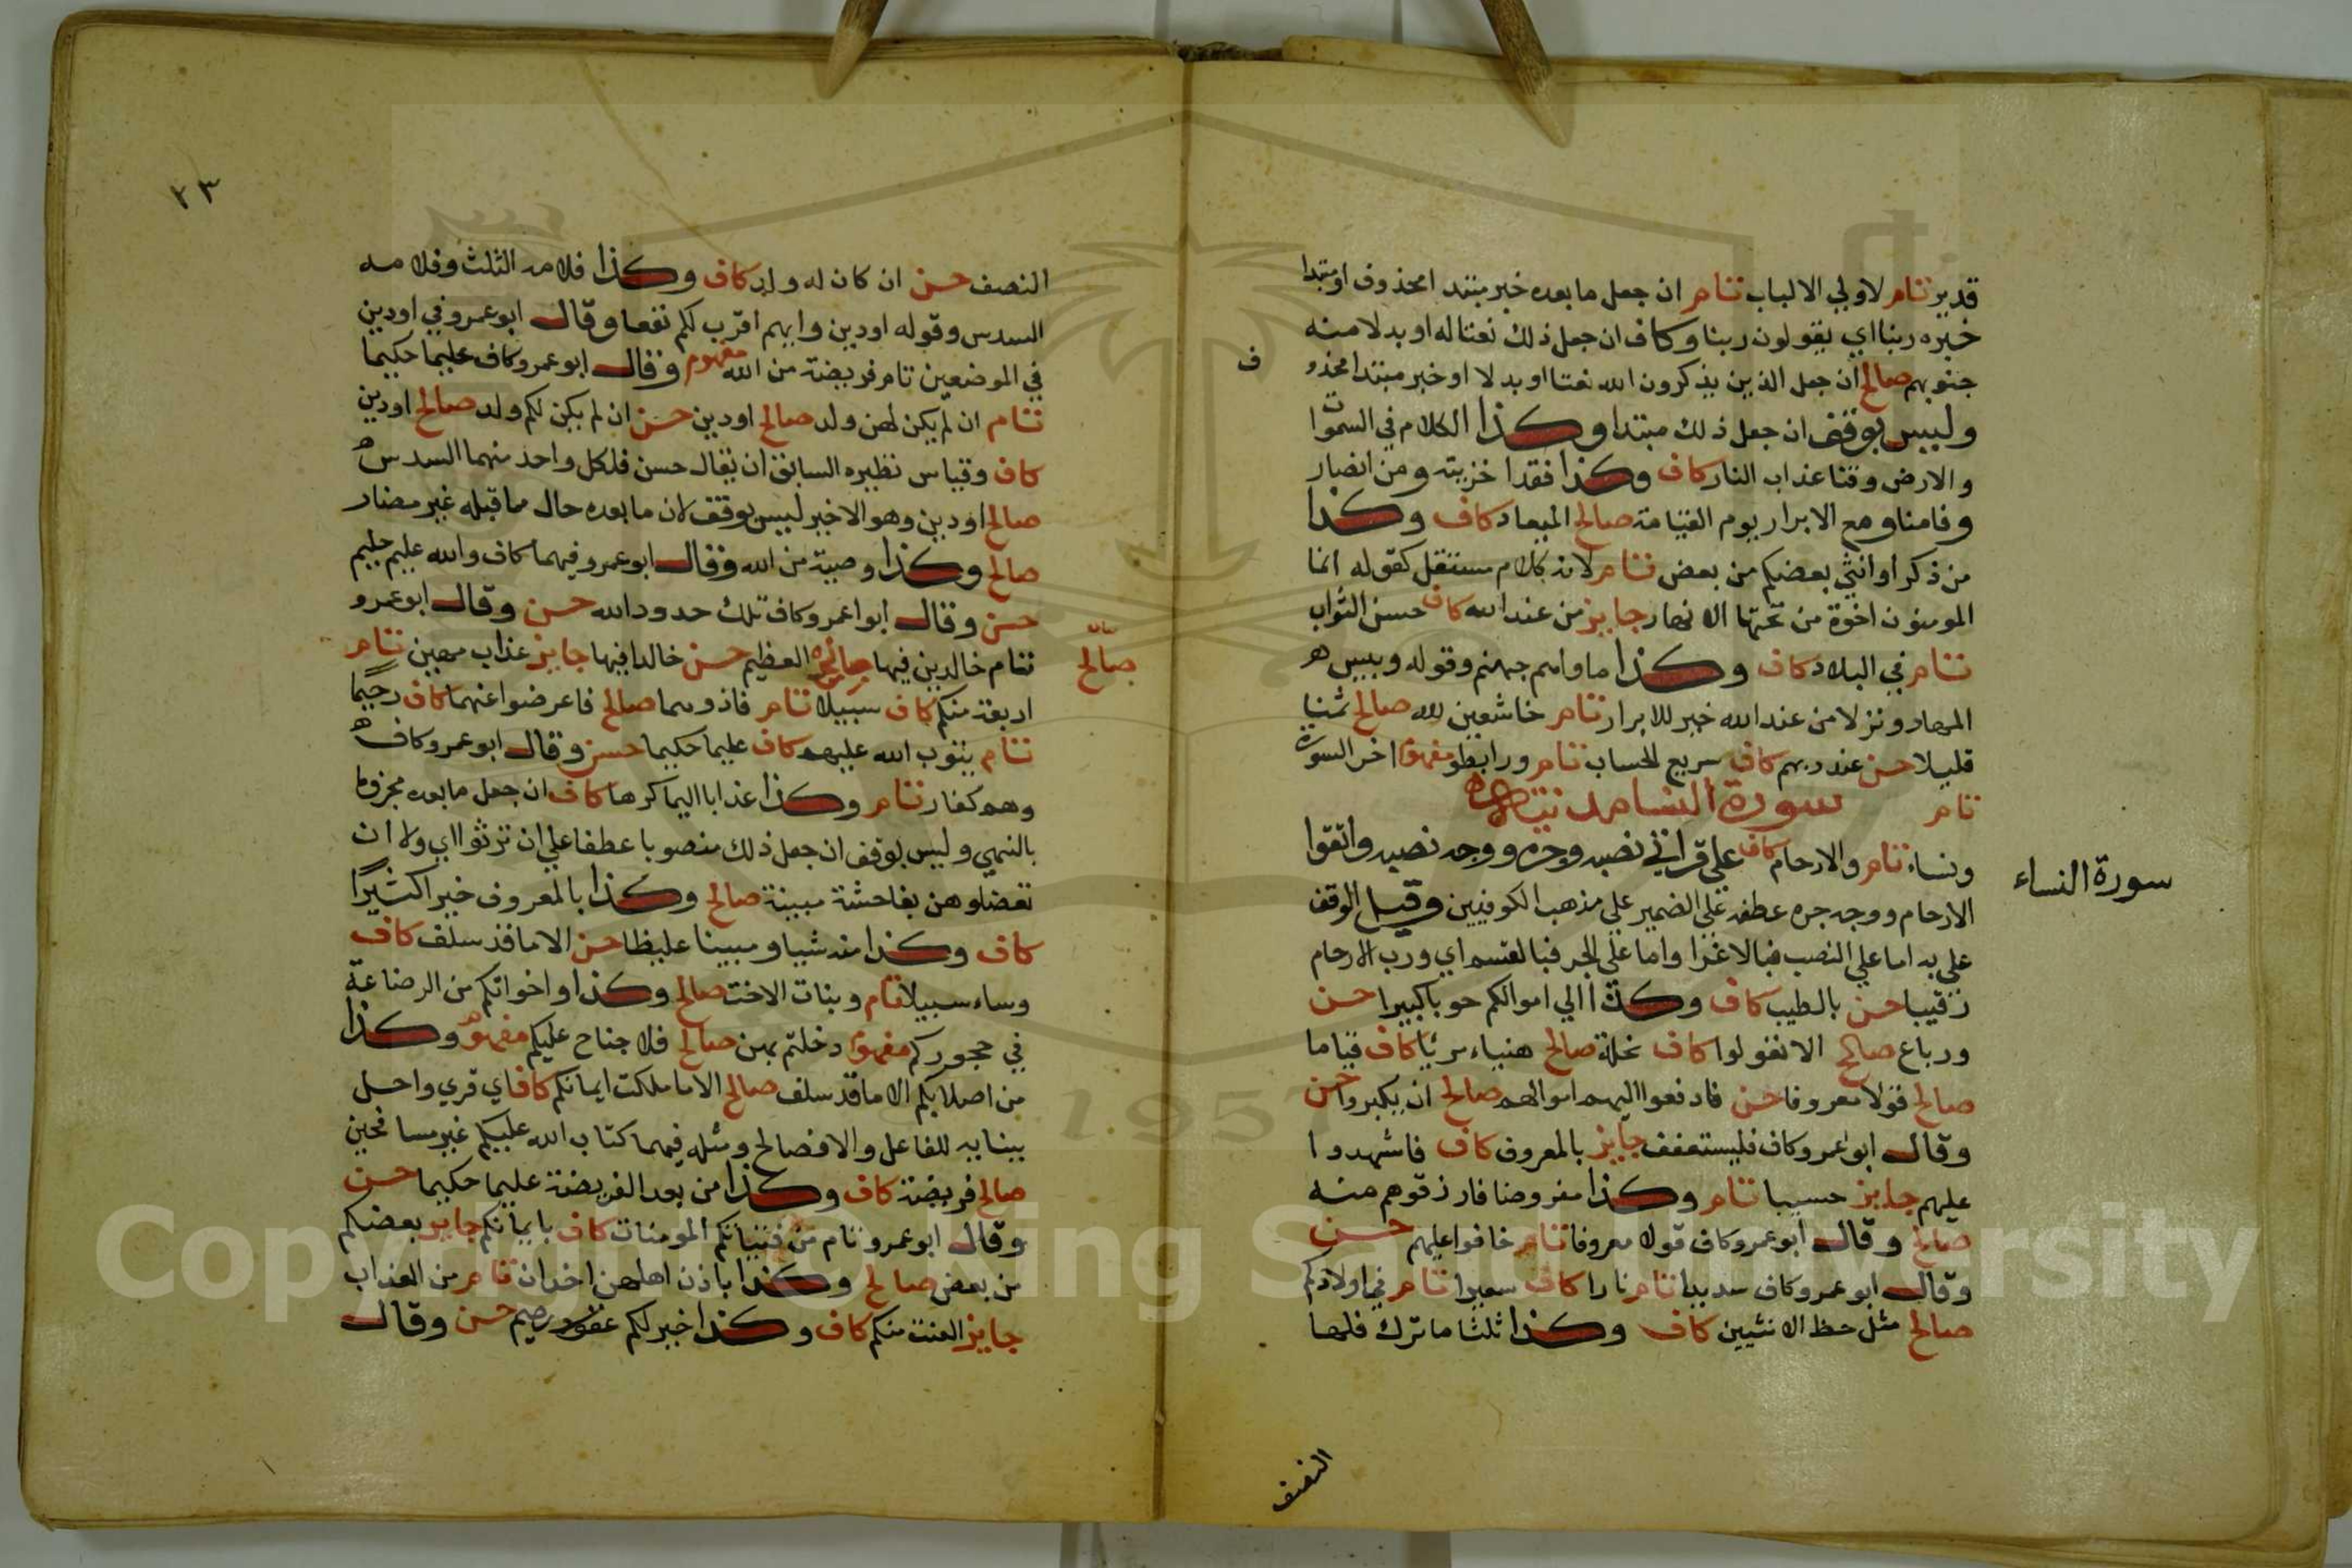 قدير تام لاولي الالباب تام ان جعل ما بعده خبر مبتدا محذوف او مبتدا
خبره ربنا اي يقولون ربنا وكاف ان جعل ذلك نعتا له او بدلا منه
جنوبهم صالح ان جعل الذين يذكرون الله نعتا او بدلا او خبر مبتدا محذو
ف
وليس بوقف ان جعل ذلك مبتدا وكذا الكلام في السموات
والارض وقنا عذاب النار كاف وكذا فقد اخزيته ومن انصار
وفامنا ومع الابرار يوم القيامة صالح الميعاد كاف وكذا
من ذكر او انثي بعضكم من بعض تام لانه كلام مستقل كقوله انما
المومنون اخوة من تحتها الانهار جايز من عند الله كاف حسن الثواب
تام في البلاد كاف وكذا ماواهم جهنم وقوله وبيس
المهاد ونزلا من عند الله خير للابرار تام خاشعين لله صالح ثمنا
قليلا حسن عند ربهم كاف سريع الحساب تام ورابطوا مفهوم اخر السورة
تام سورة النسا مدنية
سورة النساء
ونساء تام والارحام كاف علي قراتي نصبه وجره ووجه نصبه واتقوا
الارحام ووجه جره عطفه علي الضمير علي مذهب الكوفيين وقيل الوقف
علي به اما علي النصب فبالاغرا واما علي الجر فبالقسم اي ورب الارحام
رقيبا حسن بالطيب كاف وكذا الي اموالكم حوبا كبيرا حسن
ورباع صالح الا تعولوا كاف نحلة صالح هنياء مريا كاف قياما
صالح قولا معروفا حسن فادفعوا اليهم اموالهم صالح ان يكبروا حسن
وقال ابو عمرو كاف فليستعفف جايز بالمعروف كاف فاشهدوا
عليهم جايز حسيبا تام وكذا مفروضا فارزقوهم منه
صالح وقال ابو عمرو كاف قولا معروفا تام خافوا عليهم حسن
وقال ابو عمرو كاف سديدا تام نارا كاف سعيرا تام في اولادكم
صالح مثل حظ الانثيين كاف وكذا ثلثا ما ترك فلها
النصف
٢٣
النصف حسن ان كان له ولد كاف وكذا فلامه الثلث وفلامه
السدس وقوله او دين وايهم اقرب لكم نفعا وقال ابو عمرو في او دين
في الموضعين تام فريضة من الله مفهوم وقال ابو عمرو كاف عليما حكيما
تام ان لم يكن لهن ولد صالح او دين حسن ان لم يكن لكم ولد صالح او دين
كاف وقياس نظيره السابق ان يقال حسن فلكل واحد منهما السدس
صالح او دين وهو الاخير ليس بوقف لان ما بعده حال مما قبله غير مضار
صالح وكذا وصية من الله وقال ابو عمرو فيهما كاف والله عليم حليم
حسن وقال ابوا عمرو كاف تلك حدود الله حسن وقال ابو عمرو
تام خالدين فيها صالح العظيم حسن خالدا فيها جايز عذاب مهين تام
صالح
اربعة منكم كاف سبيلا تام فاذوهما صالح فاعرضوا عنهما كاف رحيما
تام يتوب الله عليهم كاف عليما حكيما حسن وقال ابو عمرو كاف
وهم كفار تام وكذا عذابا اليما كرها كاف ان جعل ما بعده مجزوما
بالنهي وليس بوقف ان جعل ذلك منصوبا عطفا علي ان ترثوا اي ولا ان
تعضلوهن بفاحشة مبينة صالح وكذا بالمعروف خيرا كثيرا
كاف وكذا منه شيا ومبينا غليظا حسن الا ما قد سلف كاف
وساء سبيلا تام وبنات الاخت صالح وكذا واخواتكم من الرضاعة
في حجوركم مفهوم دخلتم بهن صالح فلا جناح عليكم مفهوم وكذا
من اصلابكم الا ما قد سلف صالح الا ما ملكت ايمانكم كاف اي قري واحل
ببنايه للفاعل والا فصالح ومثله فيهما كتاب الله عليكم غير مسافحين
صالح فريضة كاف وكذا من بعد الفريضة عليما حكيما حسن
وقال ابو عمرو تام من فتياتكم المومنات كاف بايمانكم جايز بعضكم
من بعض صالح وكذا باذن اهلهن اخدان تام من العذاب
جايز العنت منكم كاف وكذا خير لكم غفور رحيم حسن وقال
Copyright © King Saud University
1957